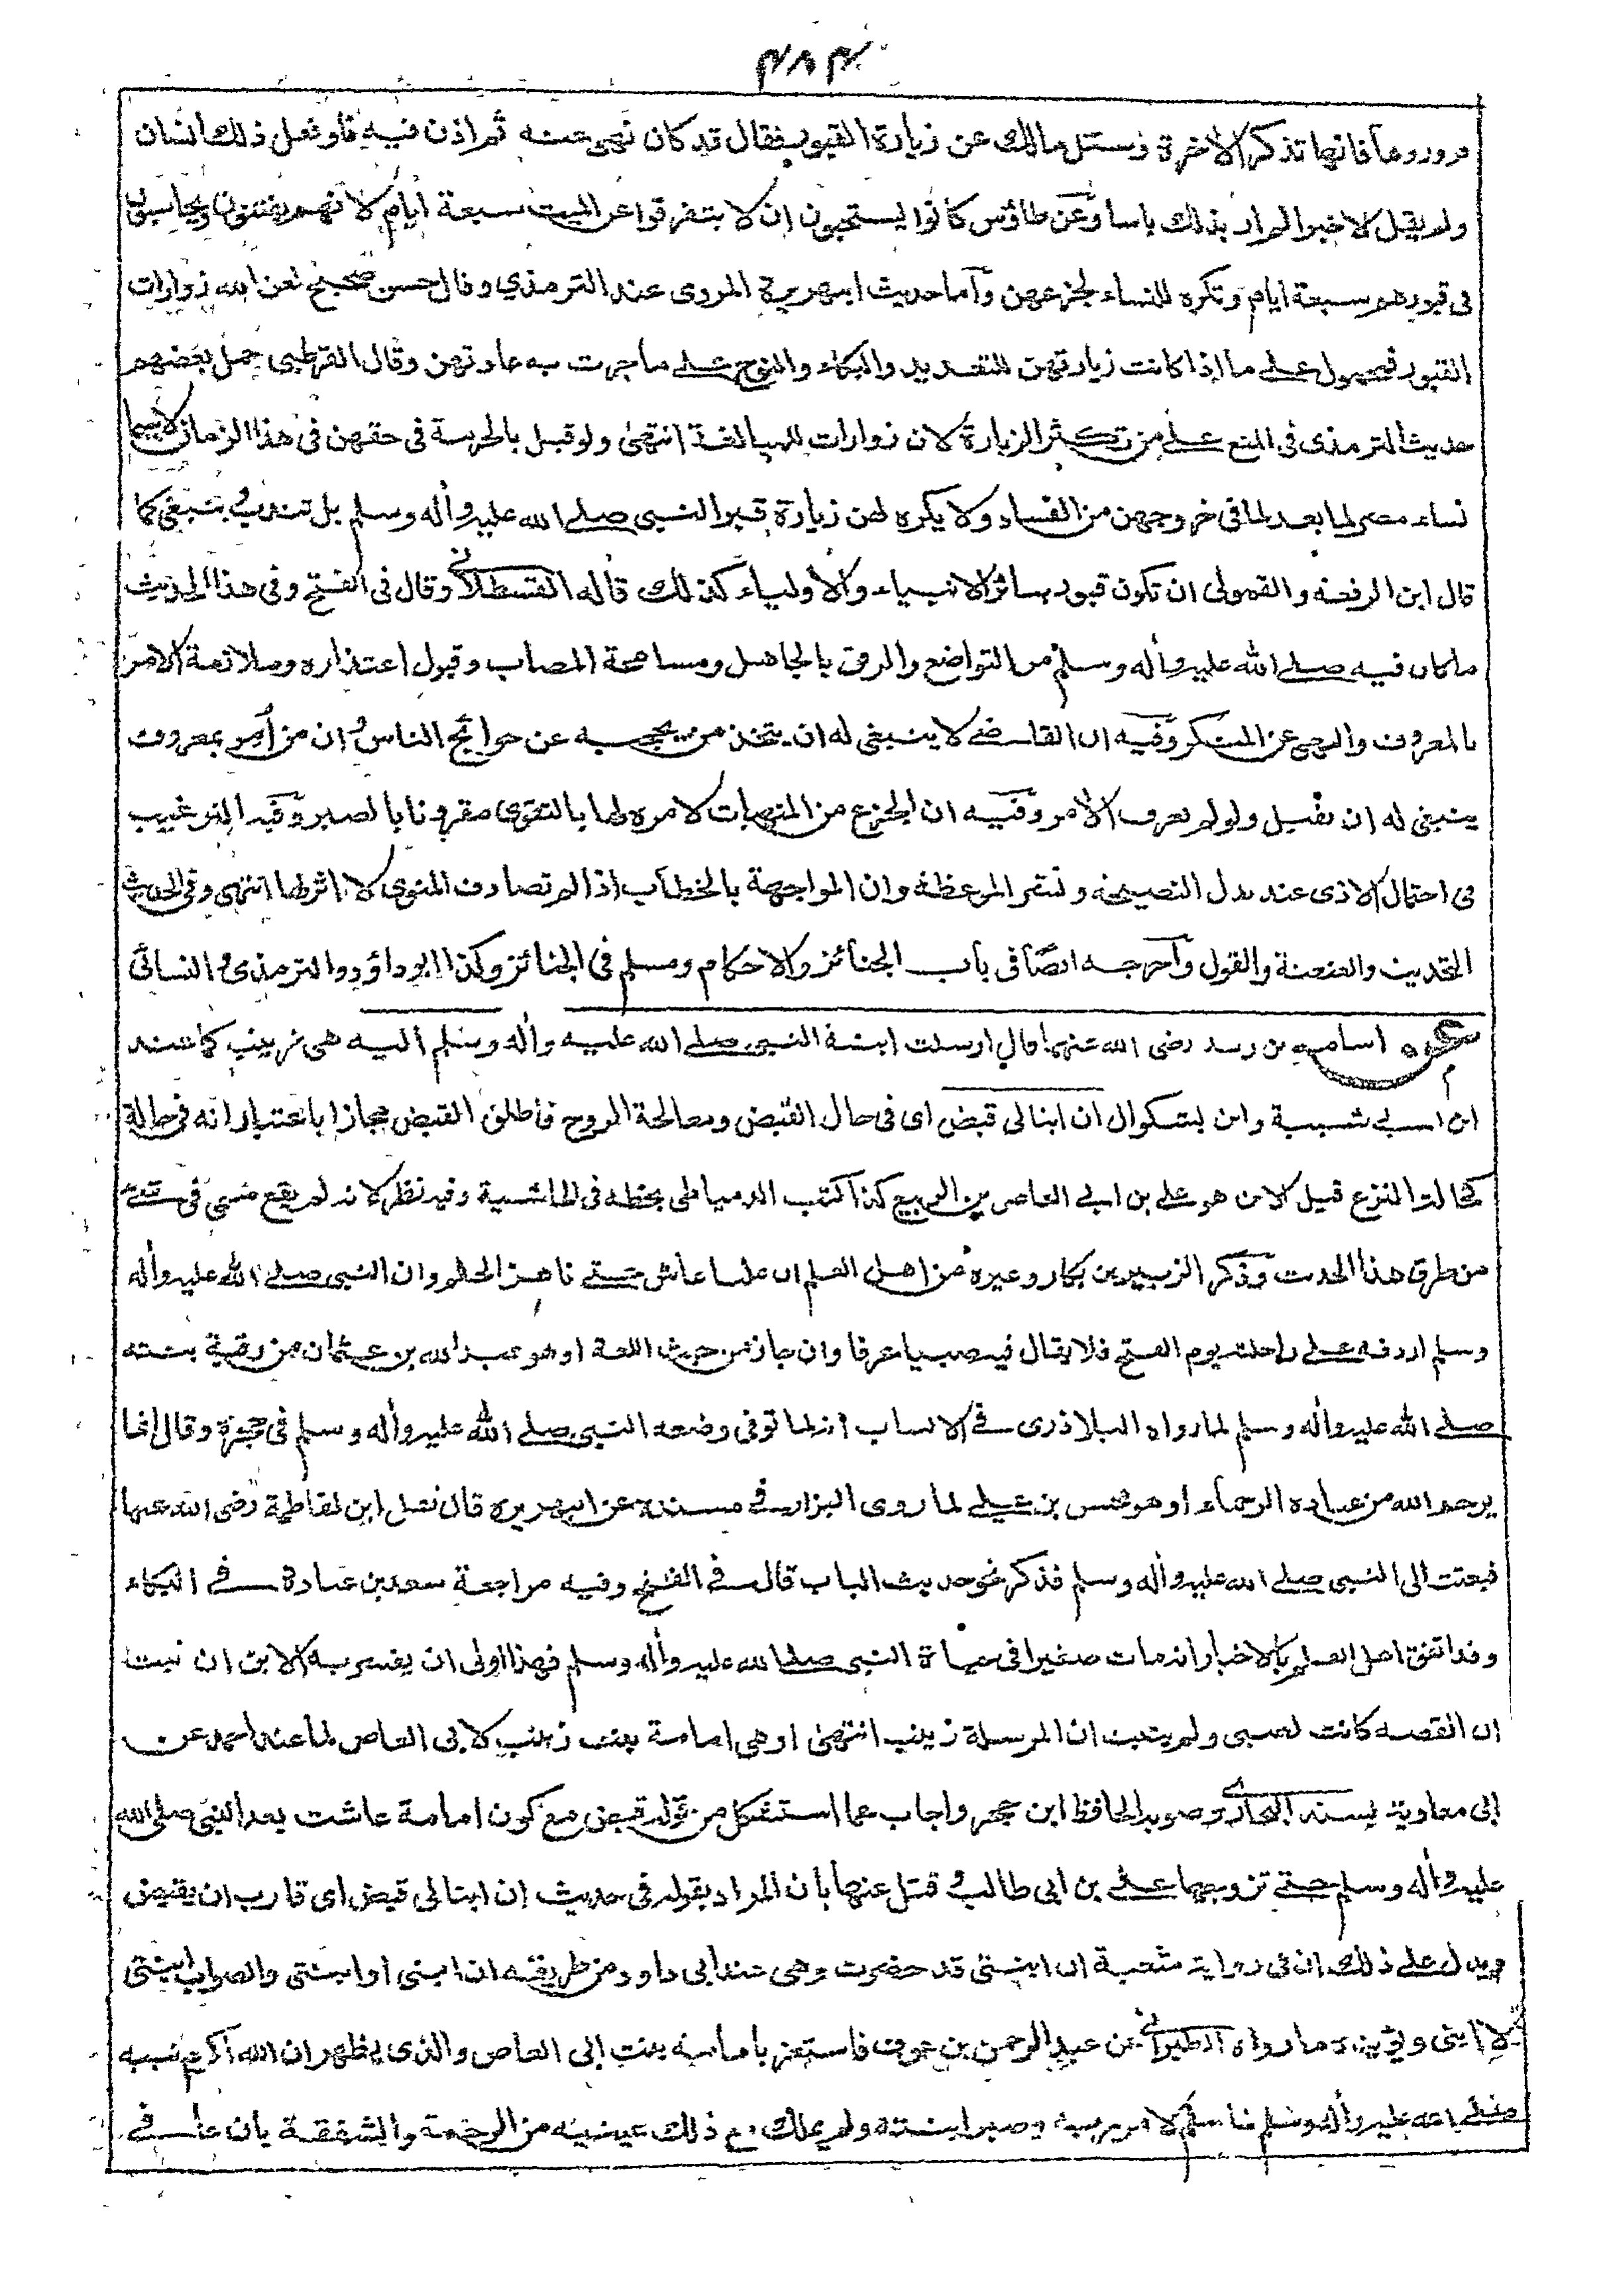 ٣٨٣
فزوروها فانها تذكر الاخرة وسئل مالك عن زيارة القبور فقال قد كان نهى عنه ثم اذن فيه فلو فعل ذلك انسان
ولم يقل الا خيرا لم ار بذلك باسا وعن طاؤس كانوا يستحبون ان لا يتفرقوا عن الميت سبعة ايام لانهم يفتنون ويحاسبون
فى قبورهم سبعة ايام وتكره للنساء لجزعهن وأما حديث ابى هريرة المروى عند الترمذي وقال حسن صحيح لعن الله زوارات
القبور فمحمول على ما اذا كانت زيارتهن للتعديد والبكاء والنوح على ما جرت به عادتهن وقال القرطبى حمل بعضهم
حديث الترمذى فى المنع على من تكثر الزيارة لان زوارات للمبالغة انتهى ولو قيل بالحرمة فى حقهن فى هذا الزمان لا سيما
نساء مصر لما بعد لما فى خروجهن من الفساد ولا يكره لهن زيارة قبر النبى صلى الله عليه وأله وسلم بل تندب وينبغى كما
قال ابن الرفعة والقمولى ان تكون قبور سائر الانبياء والأولياء كذلك قاله القسطلانى وقال فى الفتح وفى هذا الحديث
ما كان فيه صلى الله عليه وأله وسلم من التواضع والرفق بالجاهل ومسامحة المصاب وقبول اعتذاره وملازمة الامر
بالمعروف والنهى عن المنكر وفيه ان القاضى لا ينبغى له ان يتخذ من يحجبه عن حوائج الناس وان من أمر بمعروف
ينبغى له ان يقبل ولو لم يعرف الأمر وفيه ان الجزع من المنهيات لامره لها بالتقوى مقرونا بالصبر وفيه الترغيب
فى احتمال الاذى عند بذل النصيحة ونشر الموعظة وان المواجهة بالخطاب اذا لم تصادف المنوى لا اثر لها انتهى وفى الحديث
التحديث والعنعنة والقول وأخرجه ايضا فى باب الجنائز والاحكام ومسلم فى الجنائز وكذا ابو داؤد والترمذى والنسائى
عن اسامه بن زيد رضى الله عنهما قال ارسلت ابنة النبى صلى الله عليه وأله وسلم اليه هى زينب كما عند
ابن ابى شيبة وابن بشكوال ان ابنا لى قبض اى فى حال القبض ومعالجة الروح فاطلق القبض مجازا باعتبار انه فى حالة
كحالة النزع قيل الابن هو على بن ابى العاص بن الربيع كذا كتب الدمياطى بخطه فى الحاشية وفيه نظر لانه لم يقع مسمى فى شئ
من طرق هذا الحديث وذكر الزبير بن بكار وغيره من اهل العلم ان عليا عاش حتى ناهز الحلم وان النبى صلى الله عليه وأله
وسلم اردفه على راحلته يوم الفتح فلا يقال فيه صبيا عرفا وان جاز من حيث اللغة او هو عبد الله بن عثمان من رقية بنته
صلى الله عليه وأله وسلم لما رواه البلاذرى فى الانساب انه لما توفى وضعه النبى صلى الله عليه وأله وسلم فى حجره وقال انما
يرحم الله من عباده الرحماء او هو محسن بن على لما روى البزار فى مسنده عن ابى هريره قال ثقل ابن لفاطمة رضى الله عنها
فبعثت الى النبى صلى الله عليه وأله وسلم فذكر نحو حديث الباب قال فى الفتح وفيه مراجعة سعد بن عبادة فى البكاء
وقد اتفق اهل العلم بالاخبار انه مات صغيرا فى حياة النبى صلى الله عليه وأله وسلم فهذا اولى ان يفسر به الابن ان ثبت
ان القصه كانت لصبى ولم يثبت ان المرسلة زينب انتهى او هى امامة بنت زينب لابى العاص لما عند احمد عن
ابى معاوية بسند البخارى وصوبه الحافظ ابن حجر واجاب عما استشكل من قوله قبض مع كون امامة عاشت بعد النبى صلى الله
عليه وأله وسلم حتى تزوجها على بن ابى طالب وقتل عنها بان المراد بقوله فى حديث ان ابنا لى قبض اى قارب ان يقبض
ويدل على ذلك ان فى رواية شعبة ان ابنتى قد حضرت وهى عند ابى داود من طريقه ان ابنى او ابنتى والصواب ابنتى
لا ابنى ويؤيده ما رواه الطبرانى عن عبد الرحمن بن عوف فاستعز بامامة بنت ابى العاص والذى يظهر ان الله أكرم نبيه
صلى الله عليه وأله وسلم لما سلم لامر ربه وصبر ابنته ولم يملك مع ذلك عينيه من الرحمة والشفقة بان عافى